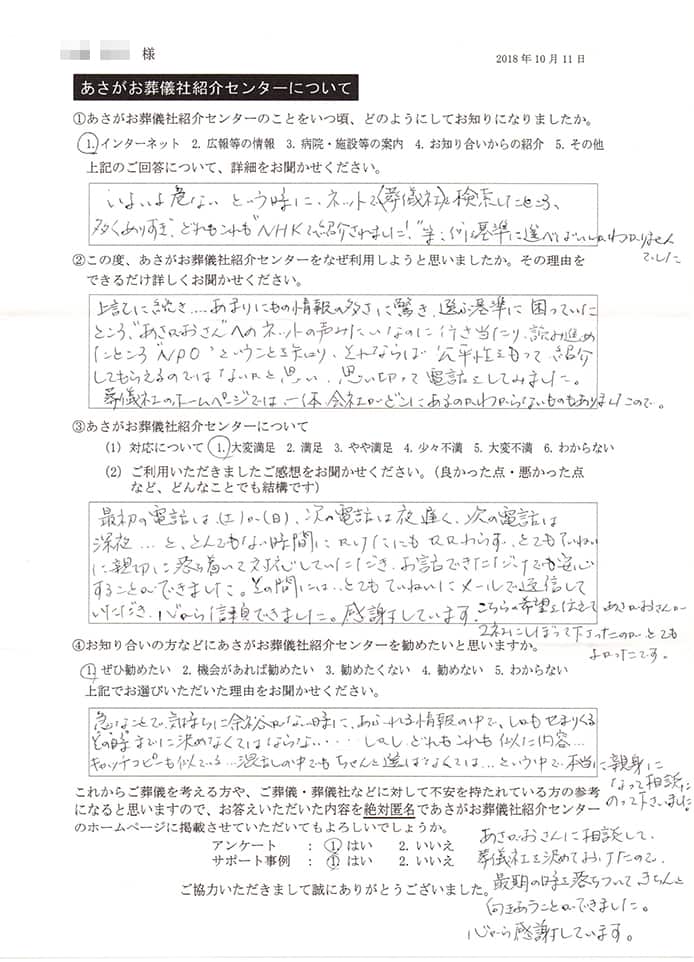 様
2018年10月11日
あさがお葬儀社紹介センターについて
①あさがお葬儀社紹介センターのことをいつ頃、どのようにしてお知りになりましたか。
1. インターネット 2. 広報等の情報 3. 病院・施設等の案内 4. お知り合いからの紹介 5. その他
上記のご回答について、詳細をお聞かせください。
いよいよ危ない という時に、ネットで(葬儀社)を検索したところ、
多くありすぎ、どれもこれも"NHKで紹介されました!"等、何を基準に選べばいいかわかりません
でした
②この度、あさがお葬儀社紹介センターをなぜ利用しようと思いましたか。その理由を
できるだけ詳しくお聞かせください。
上記に続き.... あまりにもの情報の多さに驚き、選ぶ基準に困っていた
ところ、"あさがおさん"へのネットの声みたいなのに行き当たり、読み進め
たところ"NPO"ということを知り、それならば 公平性をもって紹介
してもらえるのではないかと思い、思い切って電話をしてみました。
葬儀社のホームページでは、一体、会社がどこにあるのかわからないものもありましたので。
③あさがお葬儀社紹介センターについて
(1) 対応について 1. 大変満足 2. 満足 3. やや満足 4. 少々不満 5. 大変不満 6. わからない
(2) ご利用いただきましたご感想をお聞かせください。(良かった点・悪かった点
など、どんなことでも結構です)
最初の電話は(土)か(日)、次の電話は夜遅く、次の電話は
深夜... と、とんでもない時間にかけたにもかかわらず、とてもていねい
に親切に落ち着いて対応していただき、お話できただけでも安心
することができました。その間には、とてもていねいにメールで返信して
いただき、心から信頼できました。感謝しています。こちらの希望を伝えて あさがおさんが
2社にしぼって下さったのが とても
よかったです。
④お知り合いの方などにあさがお葬儀社紹介センターを勧めたいと思いますか。
1. ぜひ勧めたい 2. 機会があれば勧めたい 3. 勧めたくない 4. 勧めない 5. わからない
上記でお選びいただいた理由をお聞かせください。
急なことで、気持ちに余裕がない時に、あふれる情報の中で、しかもせまりくる
その時までに決めなくてはならない・・・・しかし、どれもこれも似た内容...
キャッチコピーも似ている... 混乱の中でもちゃんと選ばなくては... という中で、本当に親身に
なって相談に
のって下さいました
これからご葬儀を考える方や、ご葬儀・葬儀社などに対して不安を持たれている方の参考
になると思いますので、お答えいただいた内容を絶対匿名であさがお葬儀社紹介センター
のホームページに掲載させていただいてもよろしいでしょうか。
アンケート : 1. はい 2. いいえ
サポート事例 : 1. はい 2. いいえ
ご協力いただきまして誠にありがとうございました。
あさがおさんに相談して、
葬儀社を決めておけたので、
最期の時を落ちついて、きちんと
向きあうことができました。
心から感謝しています。